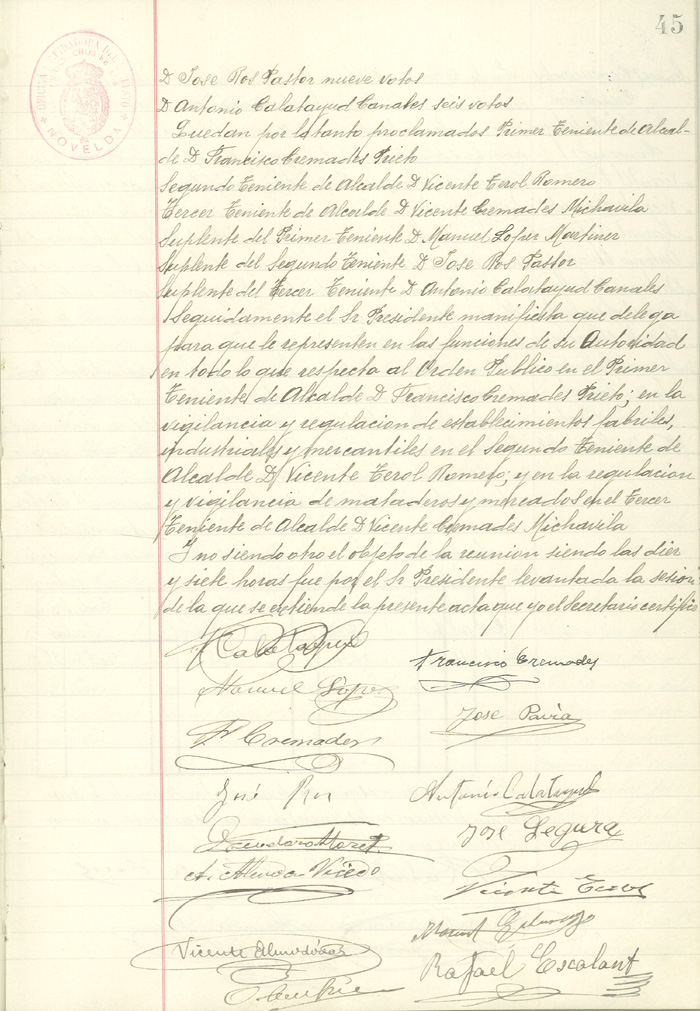 45
NOVELDA
D Jose Ros Pastor nueve votos
D Antonio Calatayud Canales seis votos
Quedan por lo tanto proclamados Primer Teniente de Alcal-
de D Francisco Cremades Prieto
Segundo Teniente de Alcalde D Vicente Terol Romero
Tercer Teniente de Alcalde D Vicente Cremades Michavila
Suplente del Primer Teniente D Manuel Lopez Martinez
Suplente del Segundo Teniente D Jose Ros Pastor
Suplente del Tercer Teniente D Antonio Calatayud Canales
Seguidamente el Sr Presidente manifiesta que delega
para que le representen en las funciones de su Autoridad
en todo lo que respecta al Orden Publico en el Primer
Teniente de Alcalde D Francisco Cremades Prieto; en la
vigilancia y regulacion de establecimientos fabriles,
industriales y mercantiles en el Segundo Teniente de
Alcalde D Vicente Terol Romero; y en la regulacion
y vigilancia de mataderos y mercados en el Tercer
Teniente de Alcalde D Vicente Cremades Michavila
Y no siendo otro el objeto de la reunion siendo las diez
y siete horas fue por el Sr Presidente levantada la sesion
de la que se extiende la presente acta que yo el Secretario certifico
Francisco Cremades
Manuel Lopez
Jose Pavia
V Cremades
José Ros
Antonio Calatayud
Jose Segura
Vicente Terol
Vicente Almodóvar
Rafael Escalant